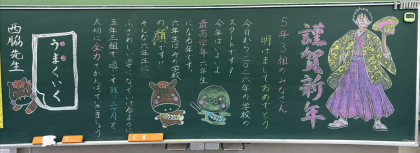 謹賀新年
5年3組のみなさん
明けましておめでとう
今日から二〇二六年の学校の
スタートです!
今年はいよいよ
最高学年六年生
になる年です。
六年生はみの西校
の「顔」です!!
みんなも六年生に
ふさわしい姿になっていけるよう
五年三組で過ごす残り三カ月を
大切に全力でがんばっていきましょう
うまくいく
西脇先生